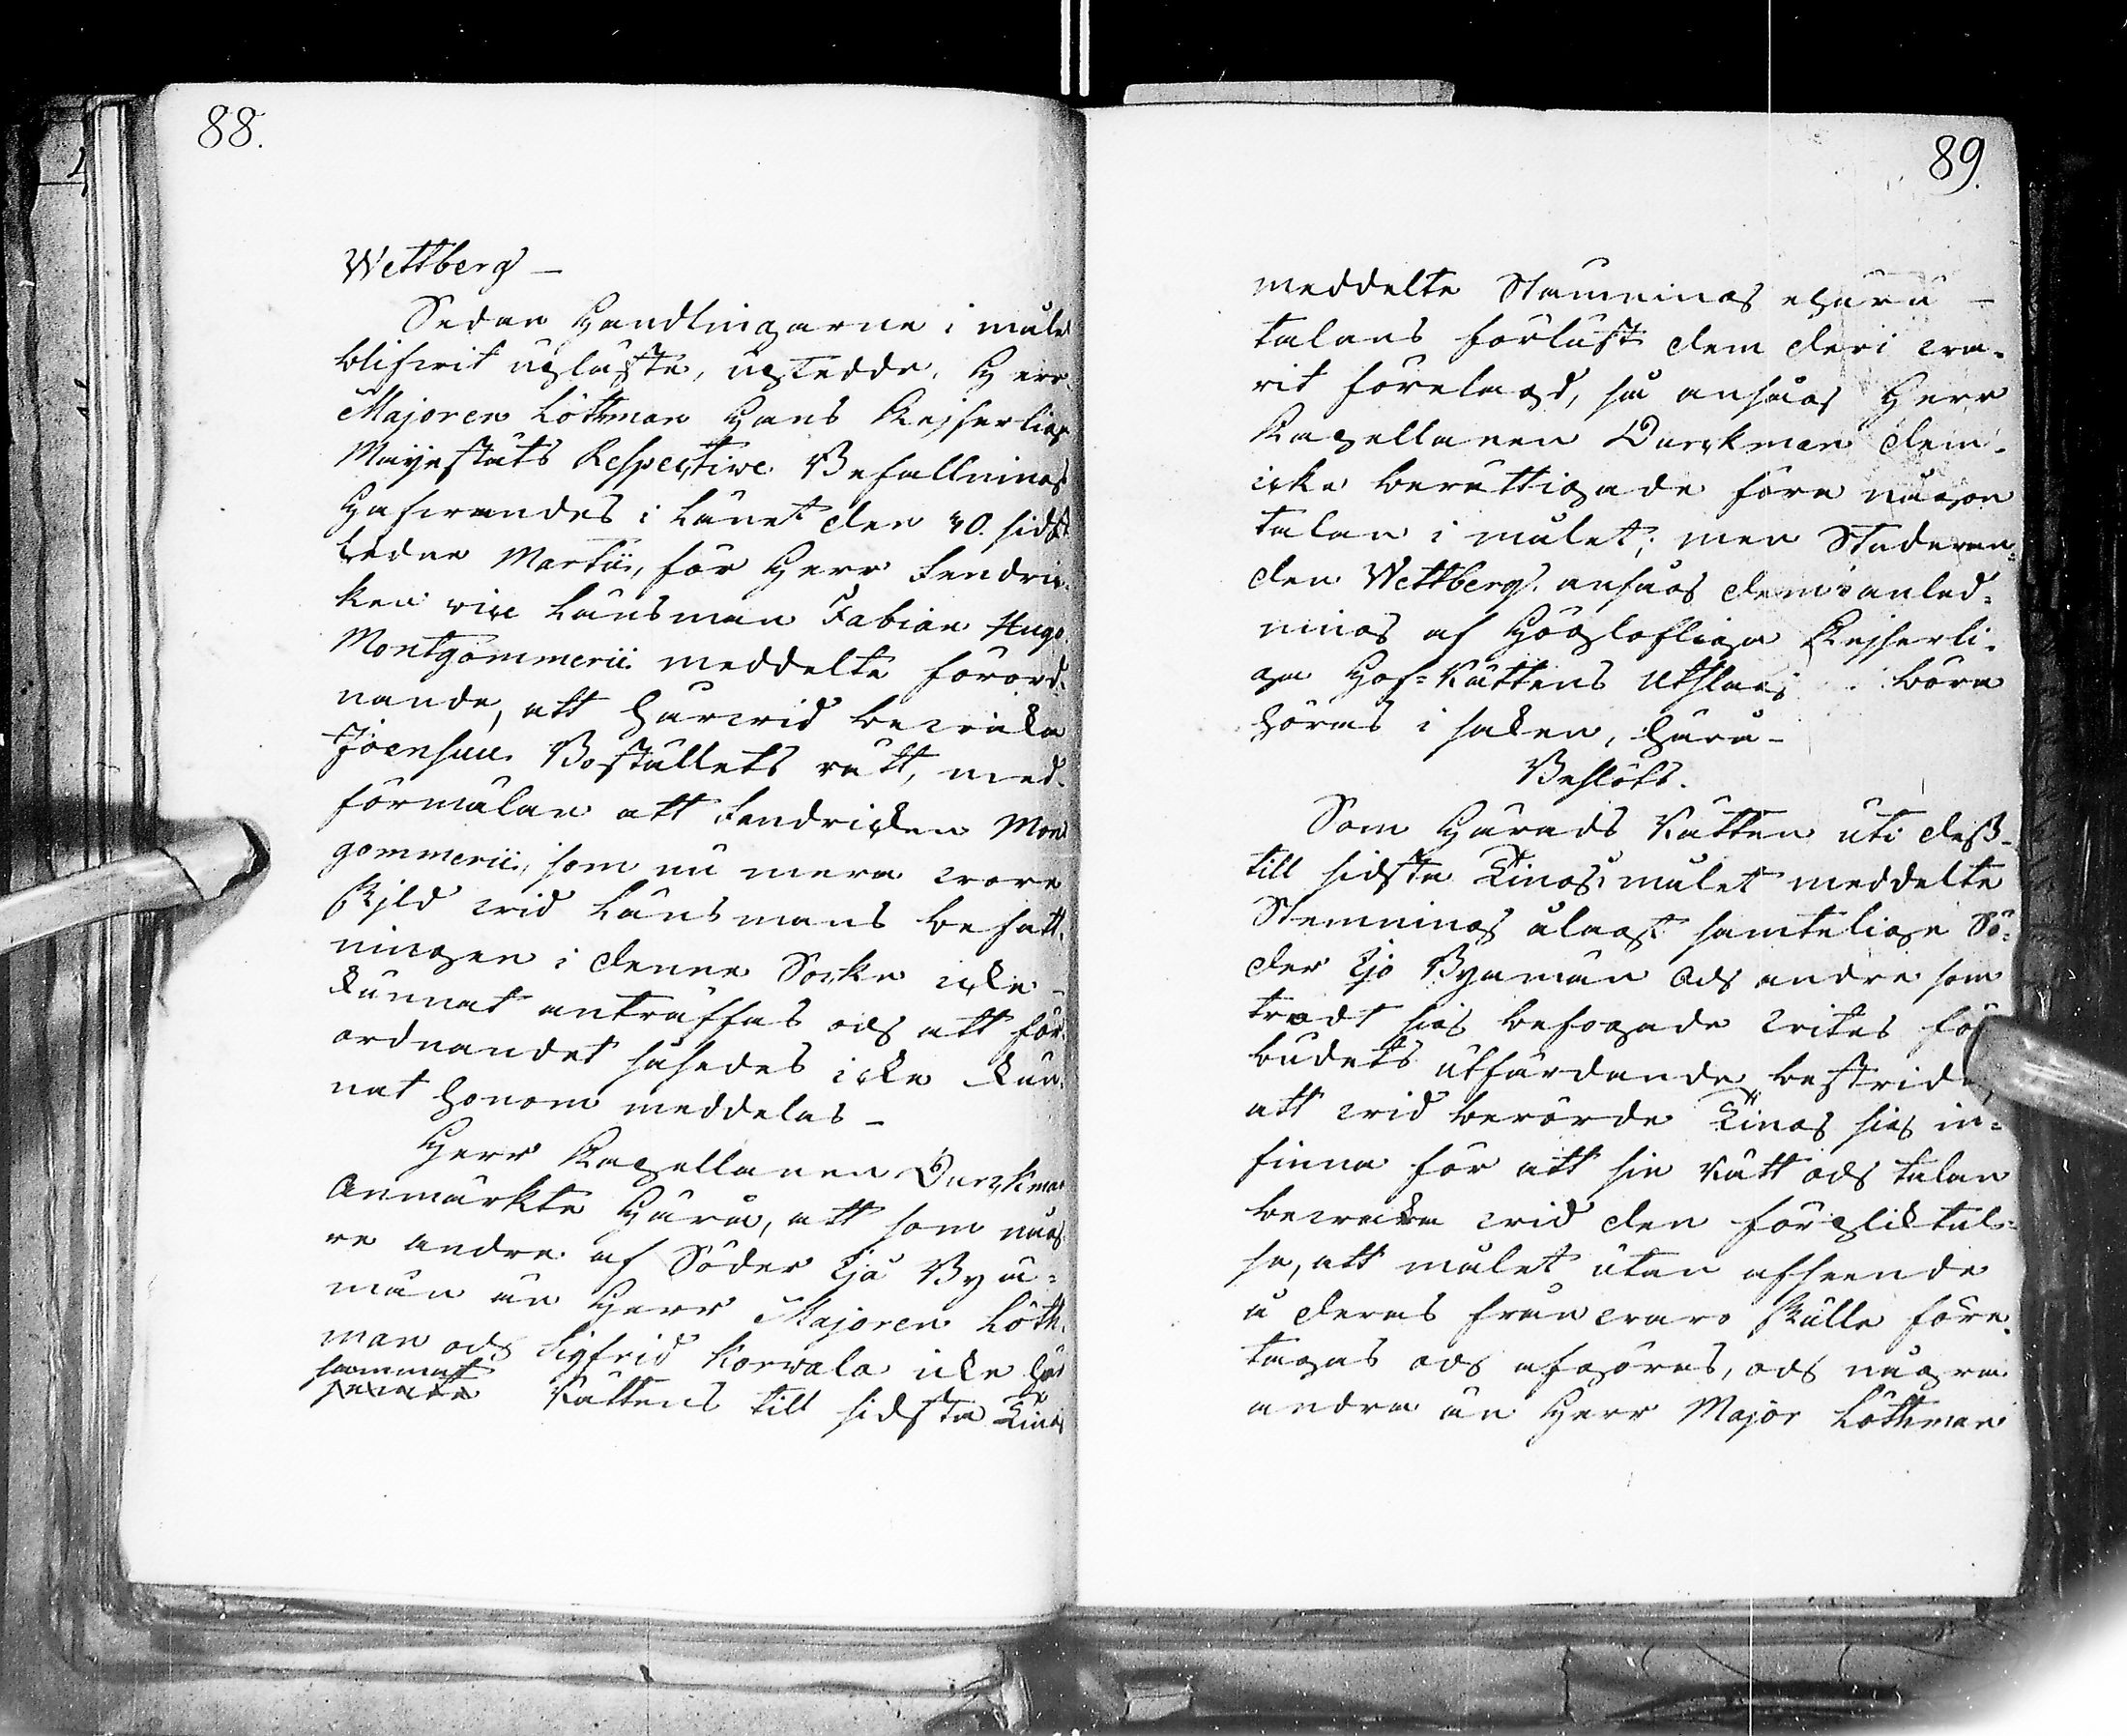 88.
Wettberg —
Sedan Handlingarne i målet
blifvit upläste, uptedde Herr
Majoren Löthman Hans Kejserlige
Majestäts Respective Befallnings
Hafvandes i Länet den 30. sidst
ledne Martii, för Herr Fendric-
ken vice Länsman Fabian Hugo
Montgommerii meddelte förord-
nande, att härvid bevaka
Joensuu Boställets rätt, med
förmälan att Fendricken Mont
gommerii, som nu mera vore
skild vid Länsmans befatt-
ningen i denne Sockn icke
kunnat anträffas och att för-
ordnandet således icke kun-
nat honom meddelas —
Herr Kapellanen Durckman
Anmärkte härå, att som någ-
re andre af Söder Ejä Bya-
män än Herr Majoren Löth-
man och Sigfrid Korwala icke
hammat Rättens till sidsta Ting
89.
meddelte Stämning ehuru —
talans förlust dem deri va-
rit förelagd, så ansåg Herr
Kapellanen Durckman dem
icke berättigade föra någon
talan i målet; men Studeran-
den Wettberg ansåg dem i anled-
ning af Höglofliga Kejserli-
ga Hof-Rättens Utslag böra
höras i saken, hvarå —
Beslöts.
Som Härads Rätten uti dess
till sidsta Ting i målet meddelte
Stemning ålagt samtelige Sö-
der Ejo Byamän och andre som
trodt sig befogade vites för
budets utfärdande bestrida,
att vid berörde Ting sig in-
finna för att sin Rätt och talan
bevaka vid den förpliktel-
se, att målet utan afseende
å deras frånvaro skulle före-
tagas och afgöras, och några
andra än Herr Major Löthman